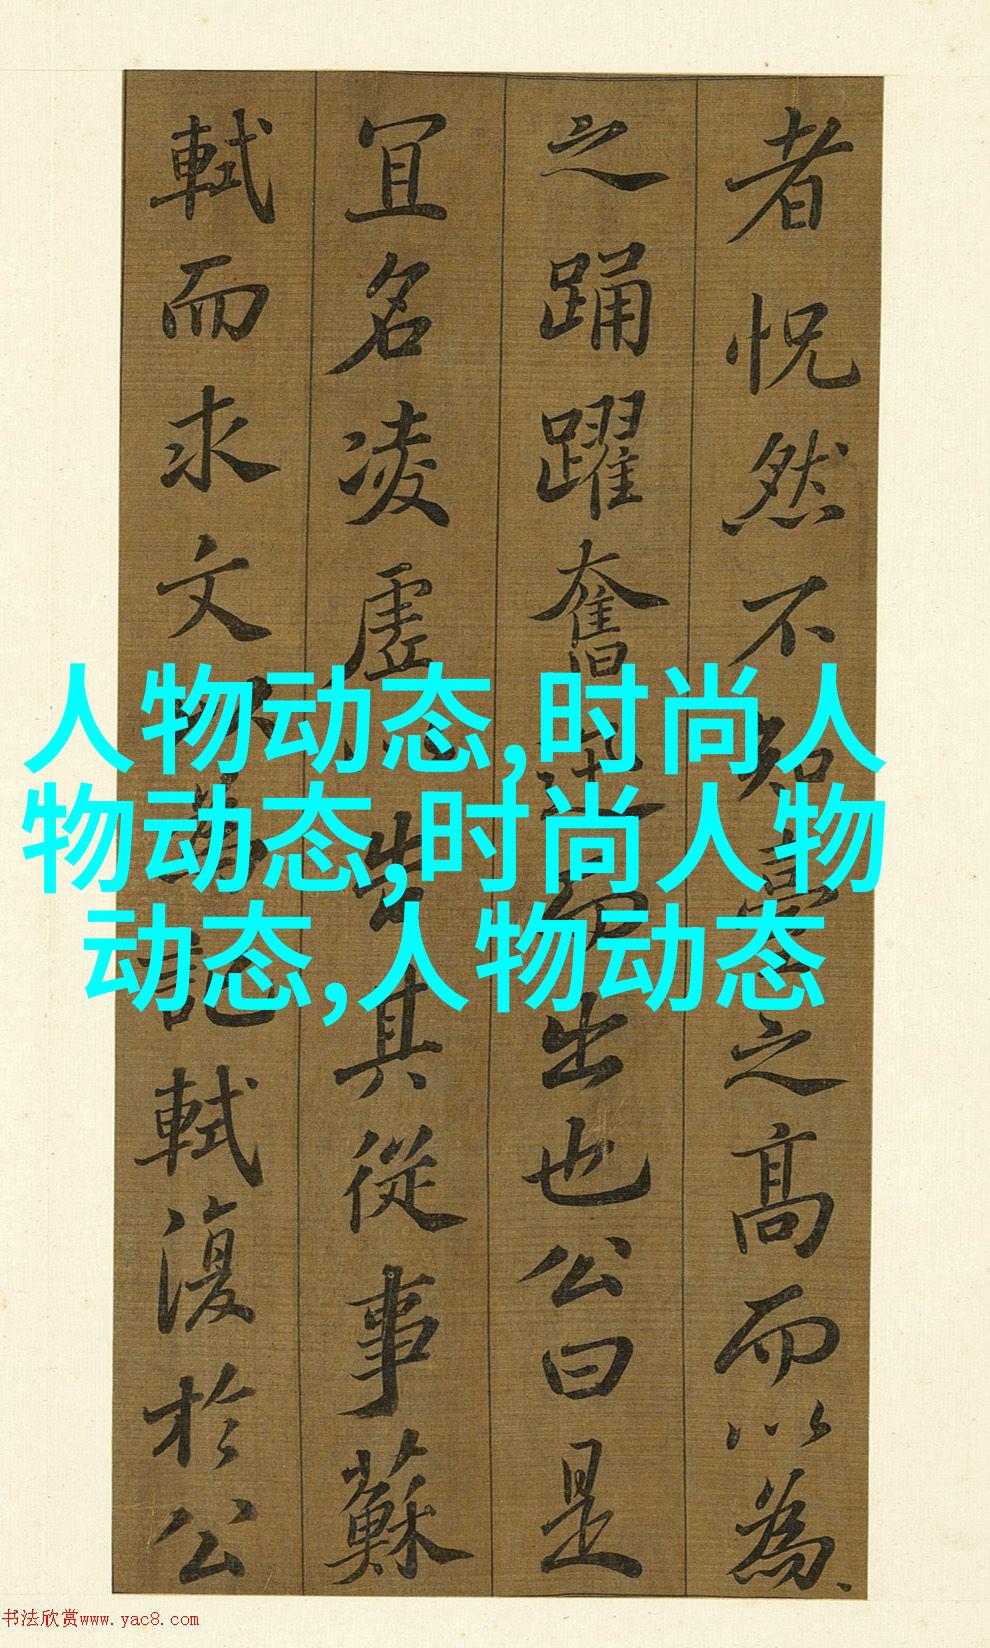 者怳然不知臺之高而以為
之踊躍奮迅而出也公曰是
冝名凌虛以告其從事蘇
軾而求文以為記軾復於公
人物动态,时尚人
物动态,时尚人物
动态,人物动态
书法欣赏www.yac8.com